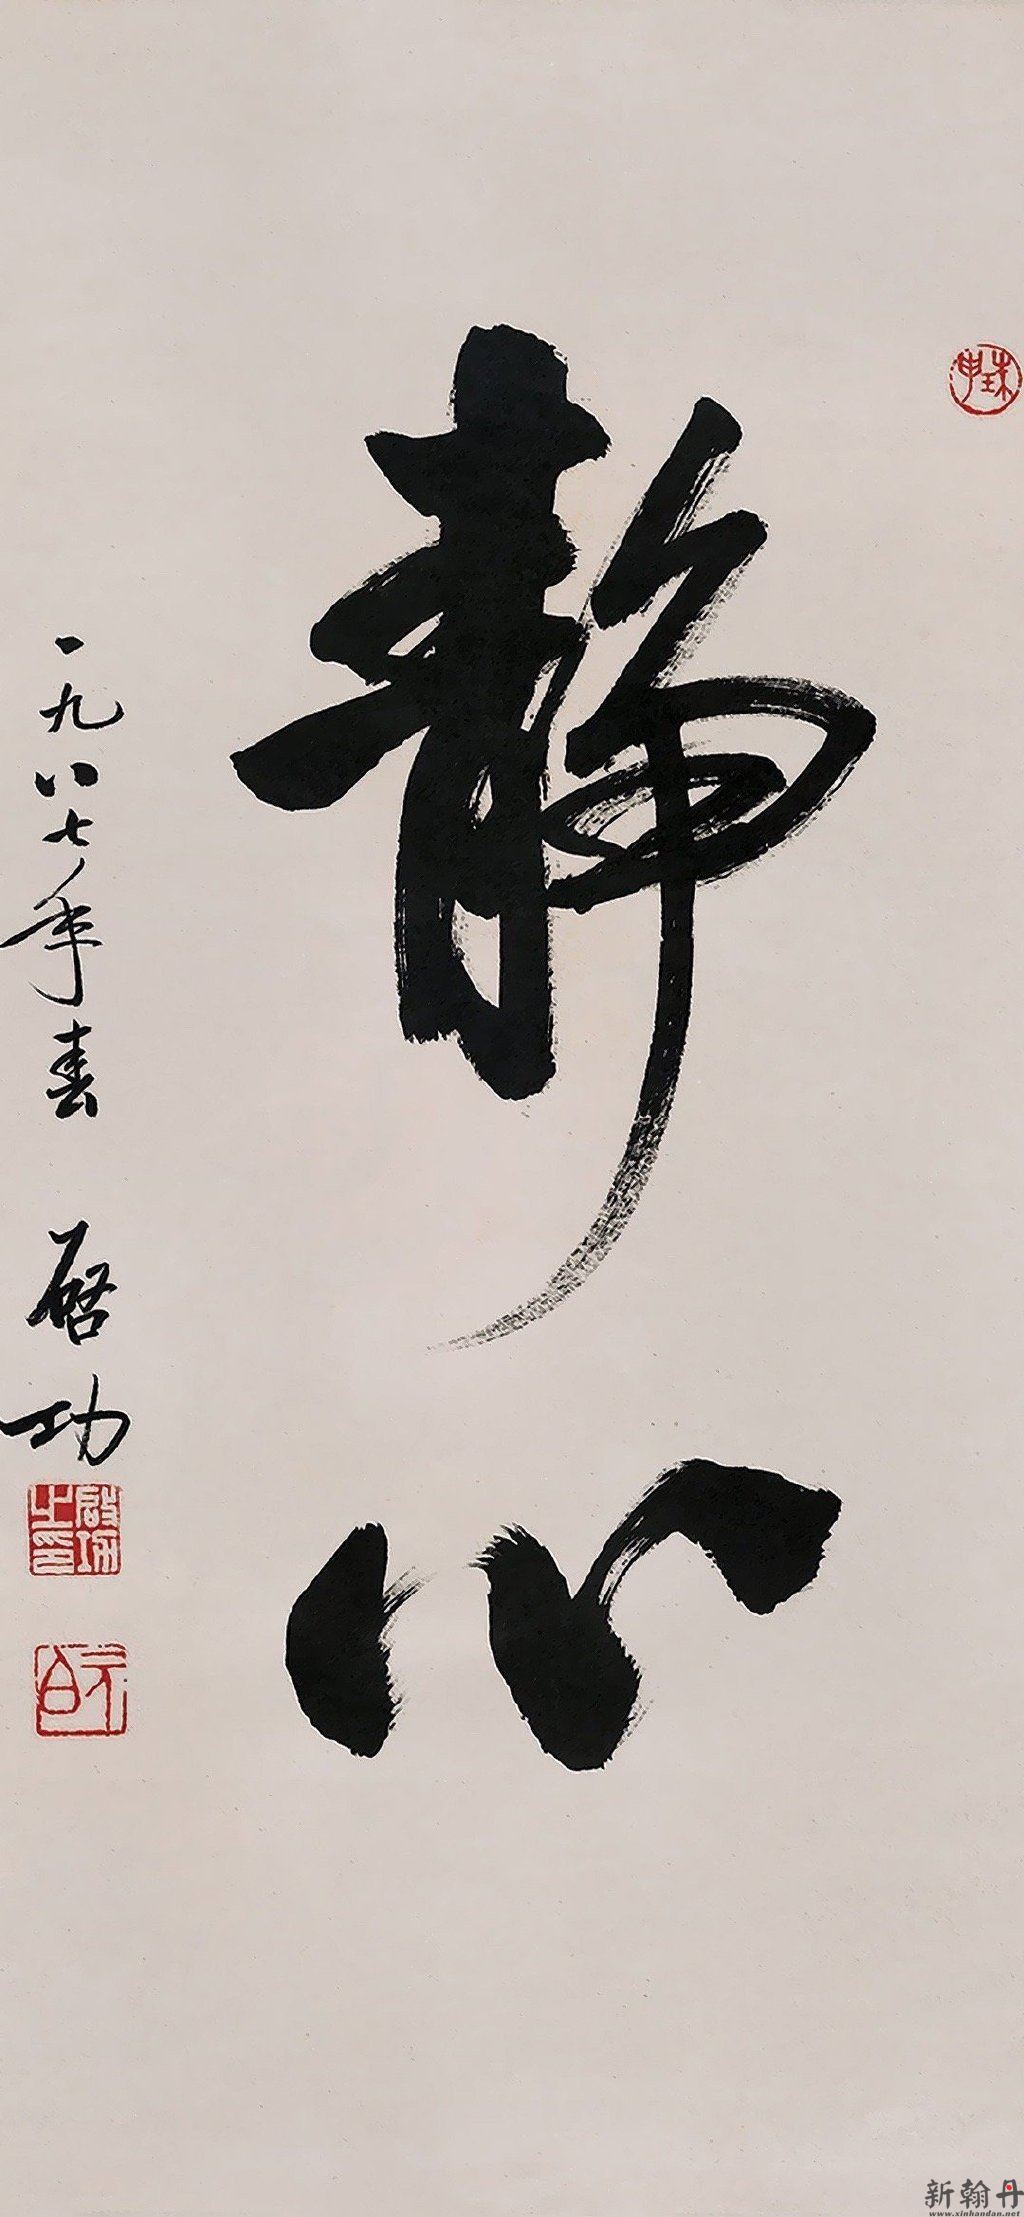 静心
一九八七年春
启功
启功之印
元白
新翰丹
www.xinhandan.net